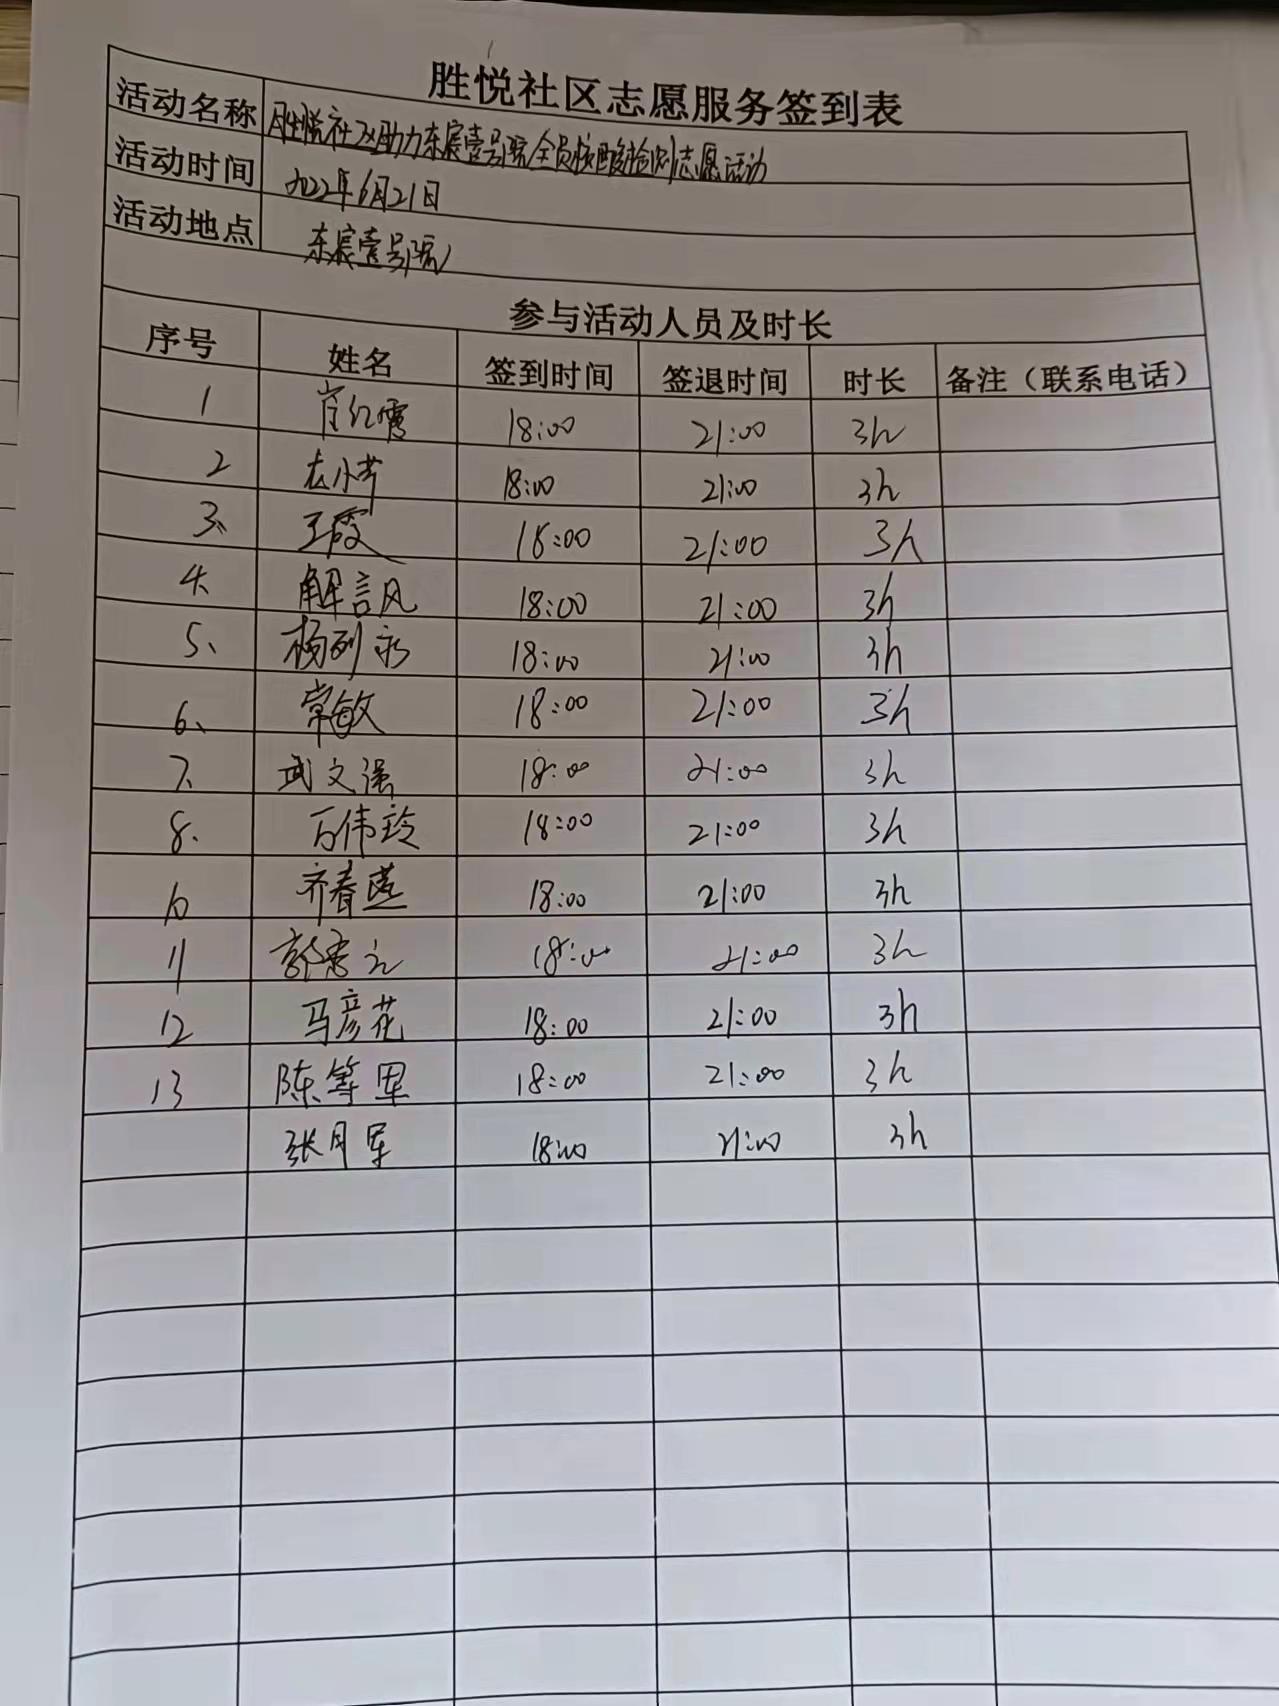 胜悦社区志愿服务签到表
活动名称 胜悦社区助力东宸壹号院全员核酸检测志愿活动
活动时间 2022年6月21日
活动地点 东宸壹号院
参与活动人员及时长
序号 姓名 签到时间 签退时间 时长 备注（联系电话）
1 肖红霞 18:00 21:00 3h
2 小芹 18:00 21:00 3h
3、 王霞 18:00 21:00 3h
4、 解言风 18:00 21:00 3h
5、 杨 18:00 21:00 3h
6、 常敏 18:00 21:00 3h
7、 武文强 18:00 21:00 3h
8、 万伟玲 18:00 21:00 3h
10 齐春莲 18:00 21:00 3h
11 郭 18:00 21:00 3h
12 马彦花 18:00 21:00 3h
13 陈等军 18:00 21:00 3h
张月军 18:00 21:00 3h